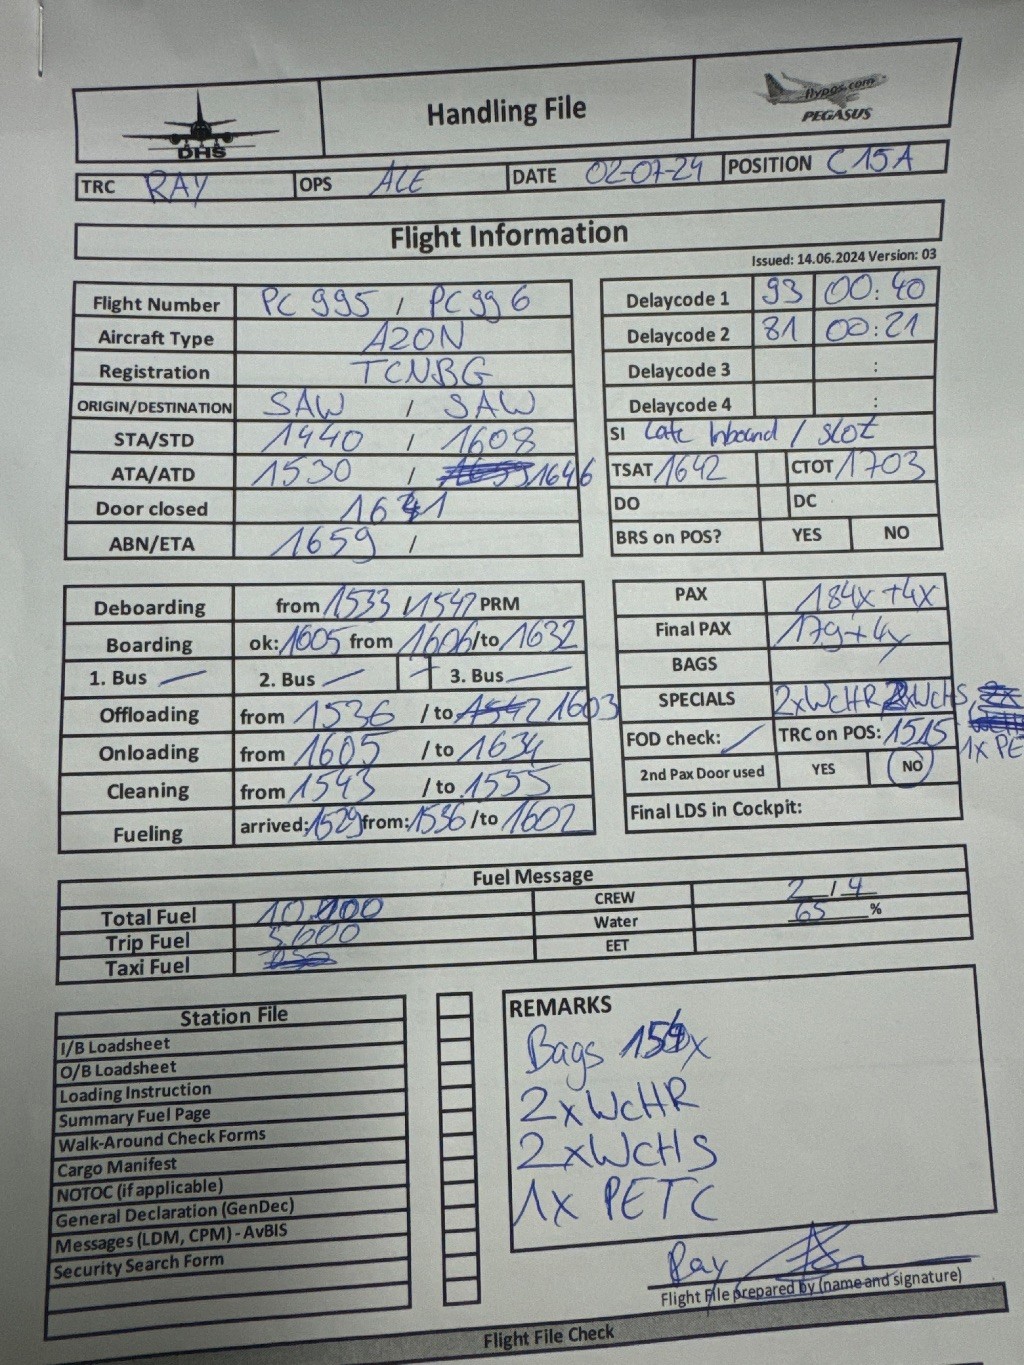 DHS
Handling File
flypgs.com
PEGASUS
TRC RAY OPS ALE DATE 02-07-24 POSITION C15A
Flight Information
Issued: 14.06.2024 Version: 03
Flight Number PC 995 / PC 996
Aircraft Type A20N
Registration TCNBG
ORIGIN/DESTINATION SAW / SAW
STA/STD 1440 / 1608
ATA/ATD 1530 / 1646
Door closed 1641
ABN/ETA 1659 /
Delaycode 1 93 00:40
Delaycode 2 81 00:21
Delaycode 3 :
Delaycode 4 :
SI Late Inbound / SLOT
TSAT 1642 CTOT 1703
DO DC
BRS on POS? YES NO
Deboarding from 1533 / 1547 PRM
Boarding ok: 1605 from 1606 /to 1632
1. Bus — 2. Bus — 3. Bus —
Offloading from 1536 / to 1542 1603
Onloading from 1605 / to 1634
Cleaning from 1543 / to 1555
Fueling arrived: 1529 from: 1536 /to 1602
PAX 184x +4x
Final PAX 179+4x
BAGS
SPECIALS 2xWCHR 2xWCHS,
1x PE
FOD check: TRC on POS: 1515
2nd Pax Door used YES NO
Final LDS in Cockpit:
Fuel Message
Total Fuel CREW 2 / 4
Trip Fuel 5,600 Water 65 %
Taxi Fuel EET
Station File
I/B Loadsheet
O/B Loadsheet
Loading Instruction
Summary Fuel Page
Walk-Around Check Forms
Cargo Manifest
NOTOC (if applicable)
General Declaration (GenDec)
Messages (LDM, CPM) - AvBIS
Security Search Form
REMARKS
Bags
2xWCHR
2xWCHS
1x PETC
Ray
Flight File prepared by (name and signature)
Flight File Check